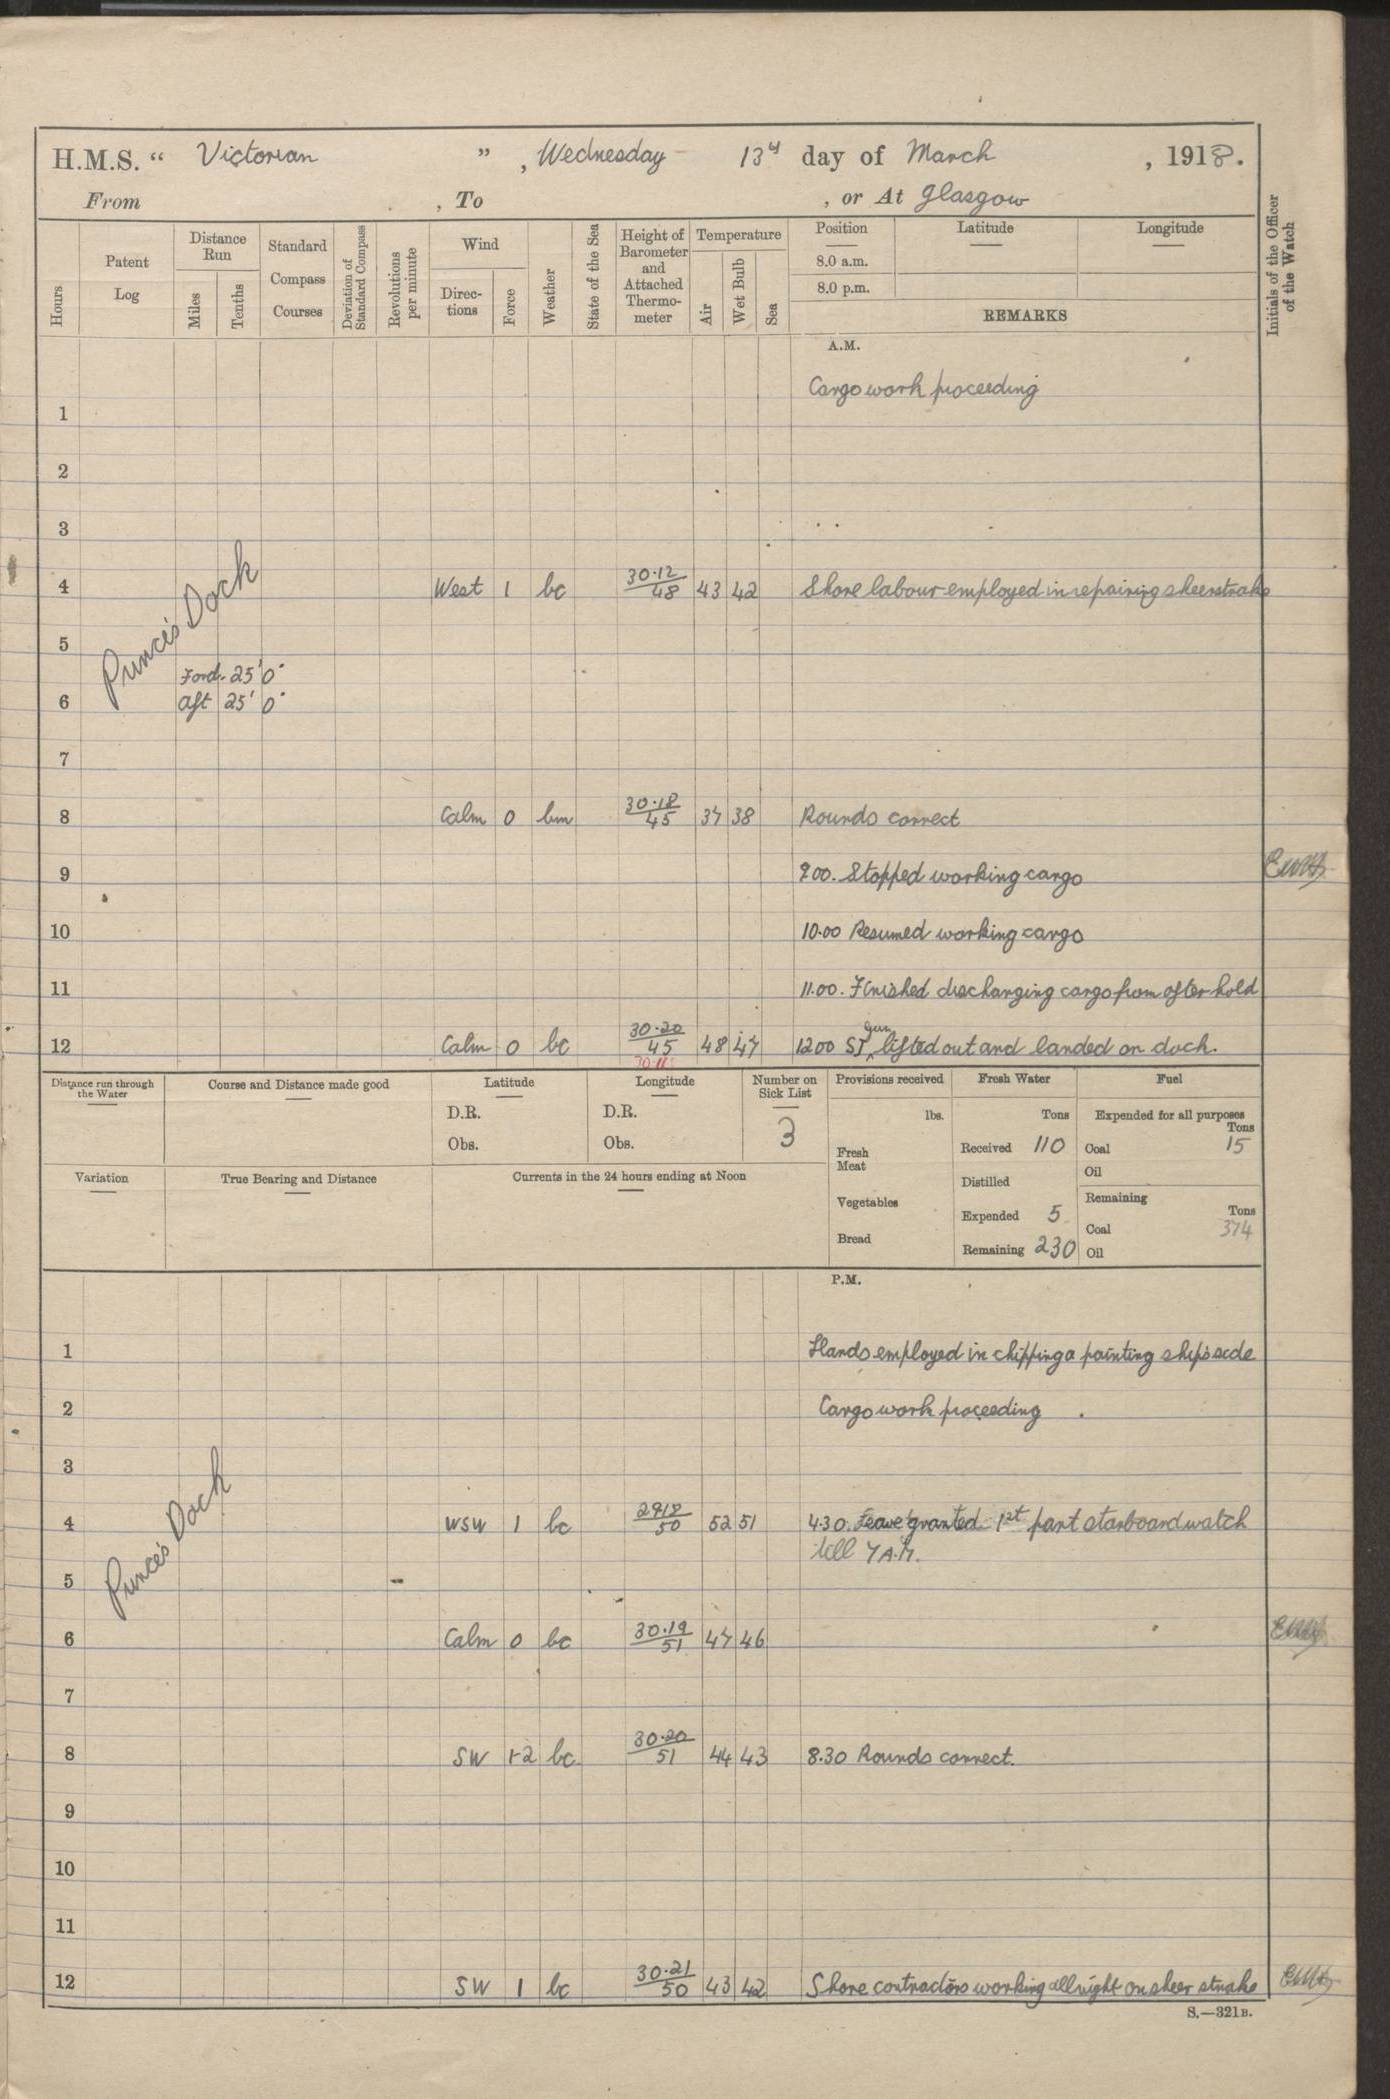 H.M.S. “ Victorian ” , Wednesday 13th day of March , 1918.
From , To , or At Glasgow
Hours
Patent Log
Distance Run
Miles
Tenths
Standard Compass Courses
Deviation of Standard Compass
Revolutions per minute
Wind
Directions
Force
Weather
State of the Sea
Height of Barometer and Attached Thermometer
Temperature
Air
Wet Bulb
Sea
Position
8.0 a.m.
8.0 p.m.
Latitude
Longitude
REMARKS
Initials of the Officer of the Watch
A.M.
Cargo work proceeding
1
2
3
4 West 1 bc 30·12/48 43 42 Shore labour employed in repairing sheerstrake
Prince's Dock
5
Ford. 25' 0"
6 Aft 25' 0"
7
8 Calm 0 bm 30·18/45 37 38 Rounds correct
9 9.00. Stopped working cargo
10 10.00 Resumed working cargo
11 11.00. Finished discharging cargo from after hold
12 Calm 0 bc 30·20/45 48 47 12.00 gun lifted out and landed on dock.
Distance run through the Water
Course and Distance made good
Latitude
D.R.
Obs.
Longitude
D.R.
Obs.
Number on Sick List
3
Provisions received
lbs.
Fresh Meat
Vegetables
Bread
Fresh Water
Tons
Received 110
Distilled
Expended 5
Remaining 230
Fuel
Expended for all purposes
Tons
Coal 15
Oil
Remaining
Tons
Coal 374
Oil
Variation
True Bearing and Distance
Currents in the 24 hours ending at Noon
P.M.
1 Hands employed in chipping & painting ship's side
2 Cargo work proceeding
3
4 WSW 1 bc 2918/50 52 51 4.30. Leave granted 1st part starboard watch
till 7 A.M.
Prince's Dock
5
6 Calm 0 bc 30·19/51 47 46
7
8 SW 1-2 bc 30·20/51 44 43 8.30 Rounds correct.
9
10
11
12 SW 1 bc 30·21/50 43 42 Shore contractors working all night on sheer strake
S.—321B.